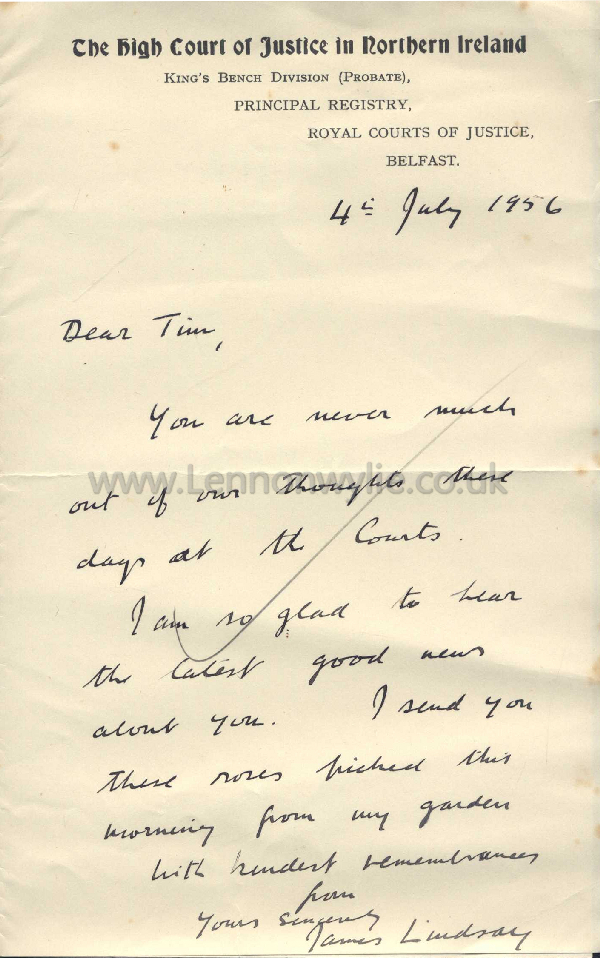 The High Court of Justice in Northern Ireland
King's Bench Division (Probate),
PRINCIPAL REGISTRY,
ROYAL COURTS OF JUSTICE,
BELFAST.
4th July 1956
Dear Tim,
You are never much
www.Lennonwylie.co.uk
out of our thoughts these
days at the Courts.
I am so glad to hear
the latest good news
about you. I send you
these roses picked this
morning from my garden
with kindest remembrances
from
Yours sincerely
James Lindsay